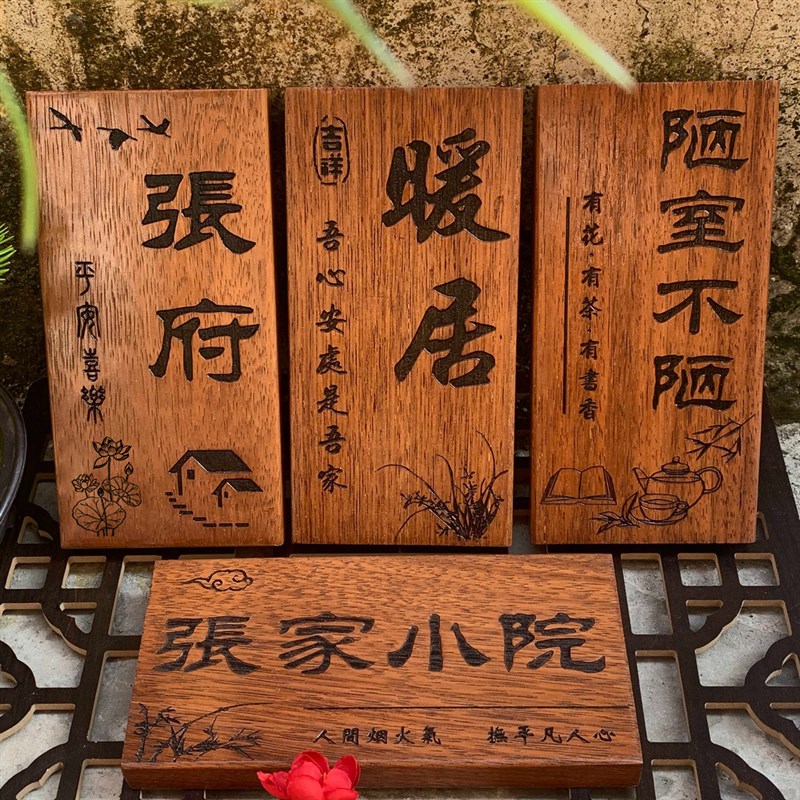 張府
平安喜樂
吉祥
暖居
吾心安處是吾家
陋室不陋
有花·有茶·有書香
張家小院
人間烟火氣 撫平凡人心